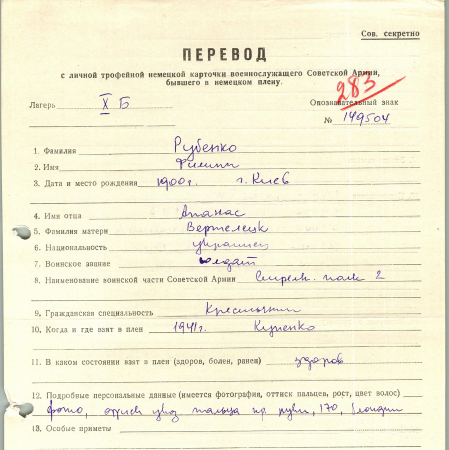 Сов. секретно
ПЕРЕВОД
с личной трофейной немецкой карточки военнослужащего Советской Армии,
бывшего в немецком плену.
283
Лагерь X Б Опознавательный знак
№ 149504
1. Фамилия Рубенко
2. Имя Филипп
3. Дата и место рождения 1900г. г. Киев
4. Имя отца Апанас
5. Фамилия матери Вертелецк
6. Национальность украинец
7. Воинское звание солдат
8. Наименование воинской части Советской Армии Стрелк. полк 2
9. Гражданская специальность Крестьянин
10. Когда и где взят в плен 1941г.
11. В каком состоянии взят в плен (здоров, болен, ранен) здоров
12. Подробные персональные данные (имеется фотография, оттиск пальцев, рост, цвет волос)
фото, оттиск указ пальца пр руки, 170, блондин
13. Особые приметы